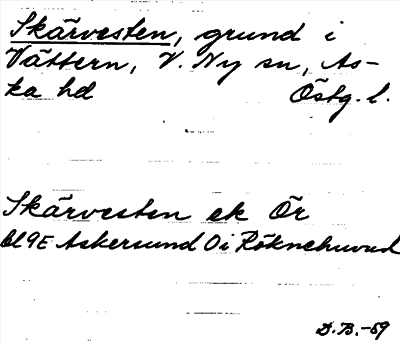 Skärvesten, grund i
Vättern, V. Ny sn, As-
ka hd Östg. l.
Skärvesten ek Ör
bl 9E Askersund O i Röknehuvud
D.B.-59